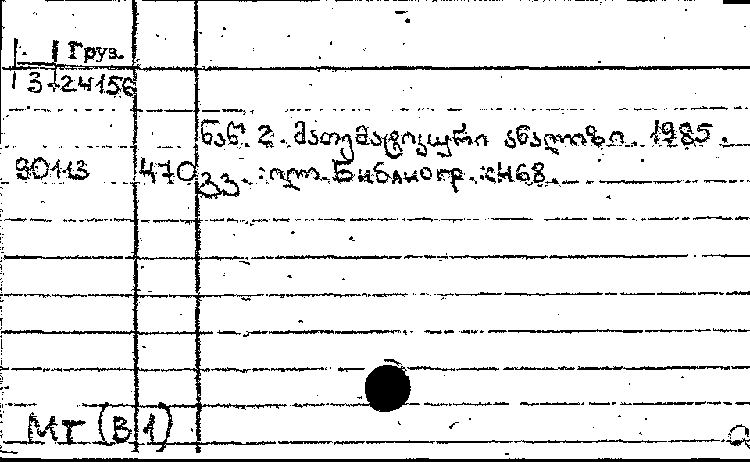 Груз.
3-24156
ნაწ. 2. მათემატიკური ანალიზი. 1985.
90113 470 გვ. : ილ. Библиогр. : с. 468.
МТ (В1)